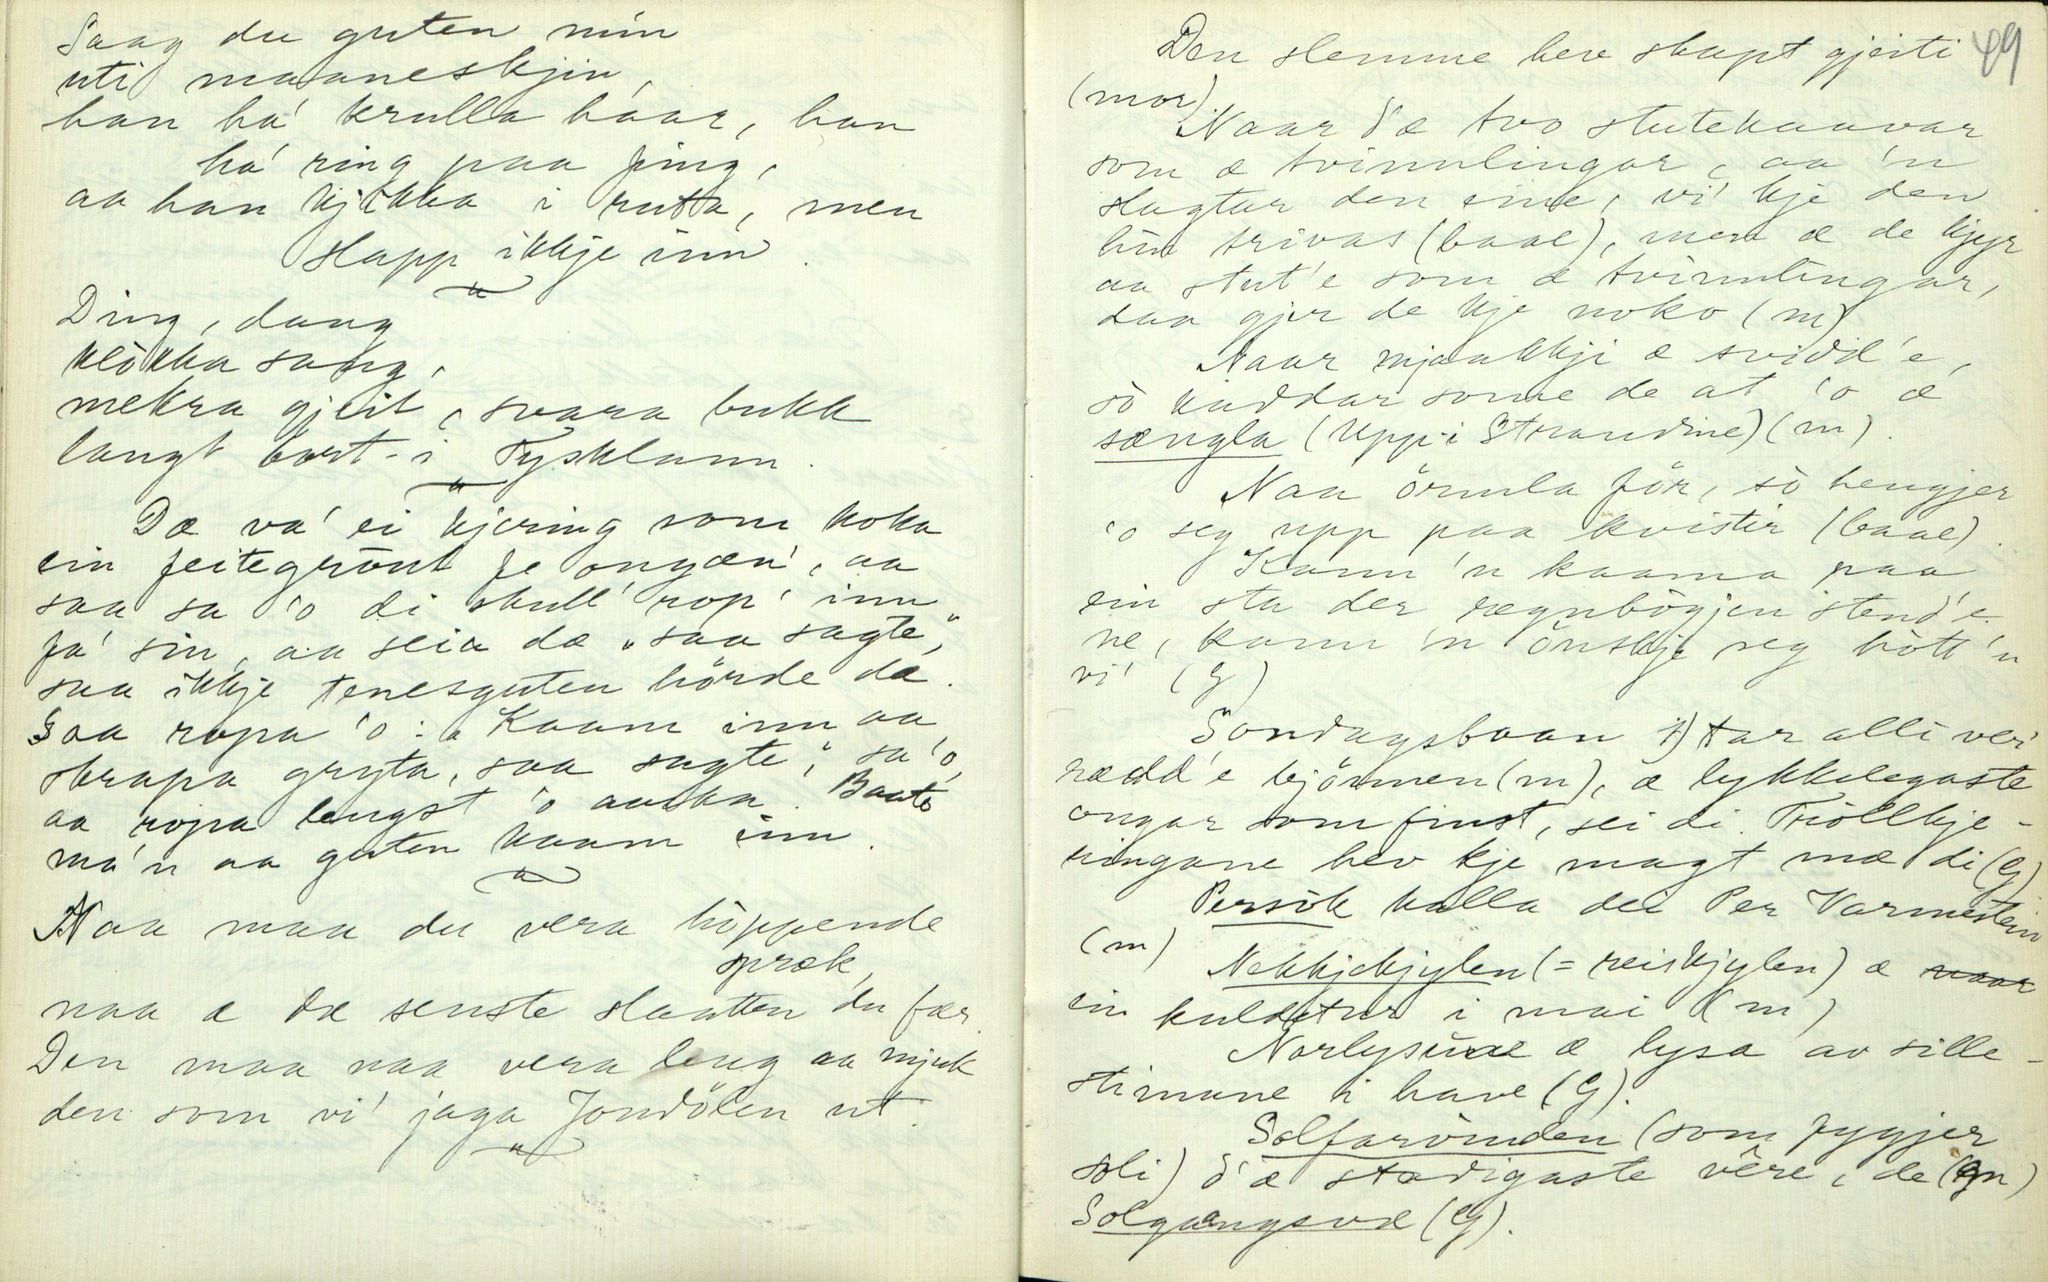 Saag du guten min
uti maaneskjin,
han ha' krulla håar, han
ha' ring paa fing,
aa han kjikka i ruta, men
slapp ikkje inn.
Ding, dang
klòkka sang,
mekra gjeit, svara bukk
langt bort-i Tysklann.
Dæ va' ei kjering som koka
ein feitegraut fe ongæn', aa
saa sa 'o di skull' rop' inn
fa' sin, aa seia dæ "saa sagte",
saa ikkje tenesguten hörde dæ.
Saa ropa 'o: "Kaam inn aa
skrapa gryta, saa sagte", sa 'o,
aa ropa lengst 'o aurka. Baate
ma'n aa guten kaam inn.
Naa maa du vera hòppende
spræk,
naa æ dæ senste slaatten du fær.
Den maa naa vera leng aa mjuk
den som vi' jaga Jondölen ut.
Den slemme hev skapt gjeiti 49
(mor).
Naar d'æ tvo stutekaavar
som æ tvinnlingar, aa 'n
slagtar den eine, vi' kje den
hin trivas (baae), men æ de kjyr
aa stut'e som æ tvinnlingar,
daa gjer de kje noko (m)
Naar mjaakkji æ svidd'e,
sò kaddar some de at 'o æ
sængla (Upp-i Strandine) (m).
Naa örmla för, sò hengjer
'o seg upp paa kvistir (baae).
Kann 'n kaama paa
ein sta der rægnbögjen stend'e
ne, kann 'n önskje seg hòtt 'n
vi' (G)
Sondagsbaan 1) tar alli veri
rædd'e bjönnen (m), æ lykkelegaste
ongar som finst, sei di. Tròllkje-
ringane hev kje magt mæ di (G)
Persòk kalla dei Per Varmestein
(m)
Nekkjekjylen (= reiskjylen) æ
ein kuldetur i mai (m)
Norlysine æ lysa av sille-
stimane i have (G).
Solfarvinden (som fygjer
soli) d'æ stødigaste vêre, de (m)
Solgangsvæ (G).